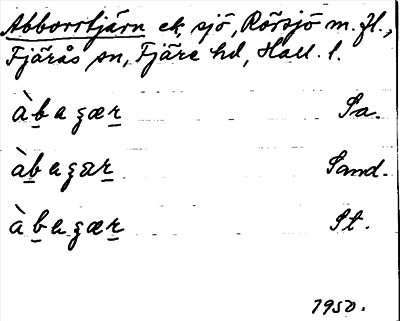 Abborrtjärn ek, sjö, Rörsjö m. fl.,
Fjärås sn, Fjäre hd, Hall. l.
àbagær Sa.
àbagær Sand.
àbagær St.
1950.